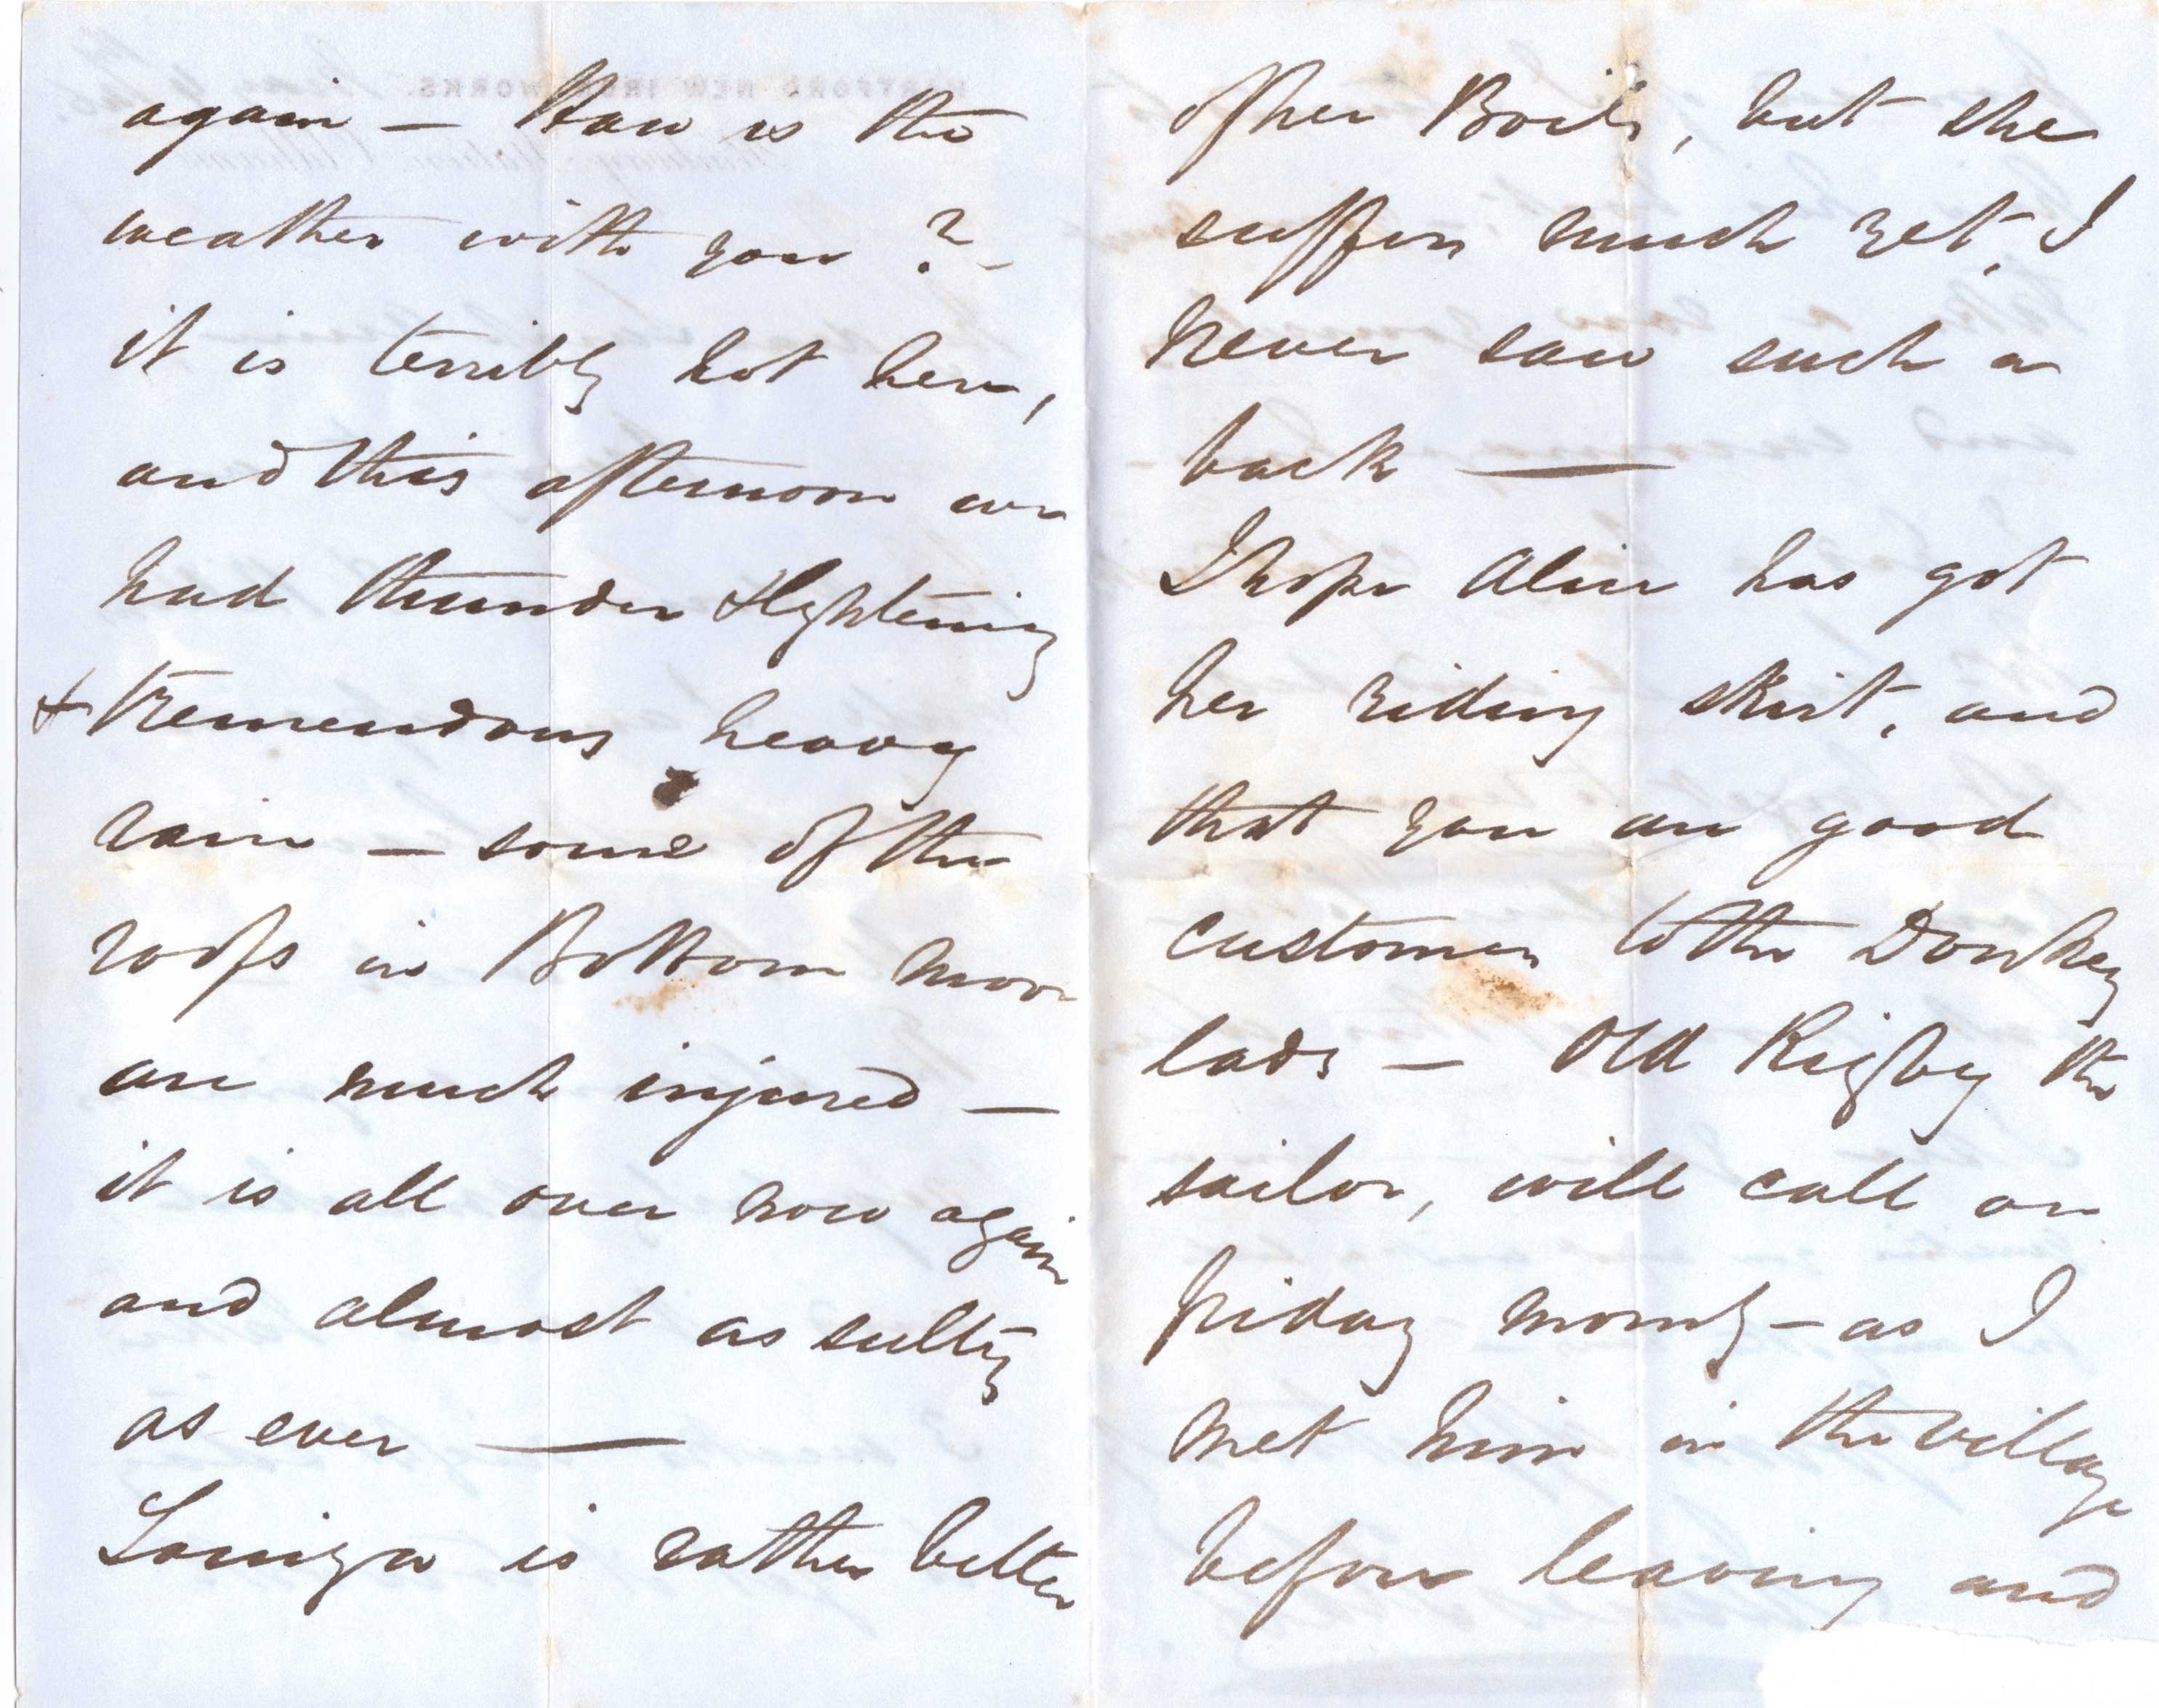 again — How is the
weather with you ? -
it is terribly hot here,
and this afternoon we
had thunder & lightening
& tremendous heavy
rain — some of the
roofs in Bottom moor
are much injured —
it is all over now again
and almost as sultry
as ever —
Louiza is rather better
of her Boils, but she
suffers much yet, I
never saw such a
back —
I hope Alice has got
her riding skirt, and
that you are good
customers to the Donkey
lads — Old Rigby the
sailor, will call on
friday morng — as I
met him in the village
before leaving and